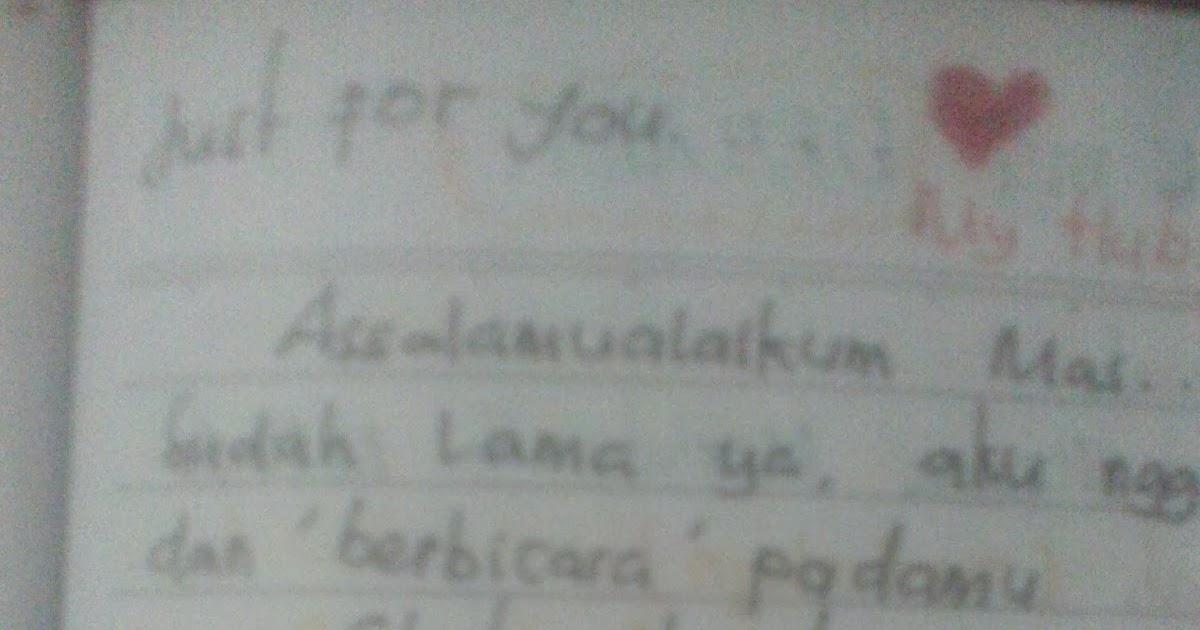 just for you.....
My Hub
Assalamualaikum Mas..
sudah lama ya, aku ngg
dan 'berbicara' padamu